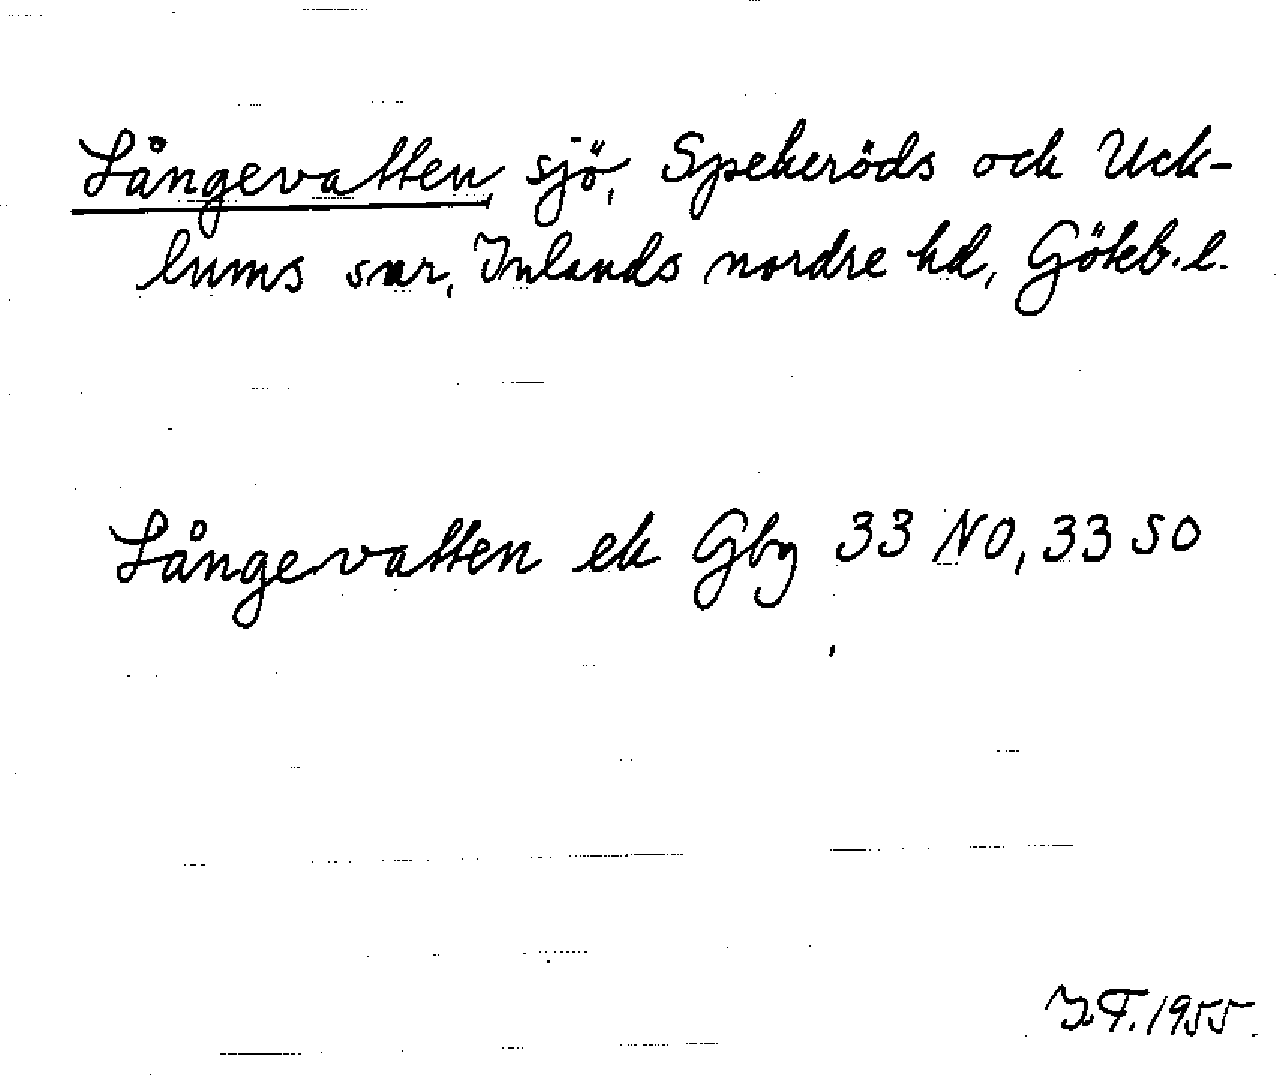 Långevatten, sjö, Spekeröds och Uck-
lums snr, Inlands nordre hd, Götb. l.
Långevatten ek Gbg 33 NO, 33 SO
I.F. 1955